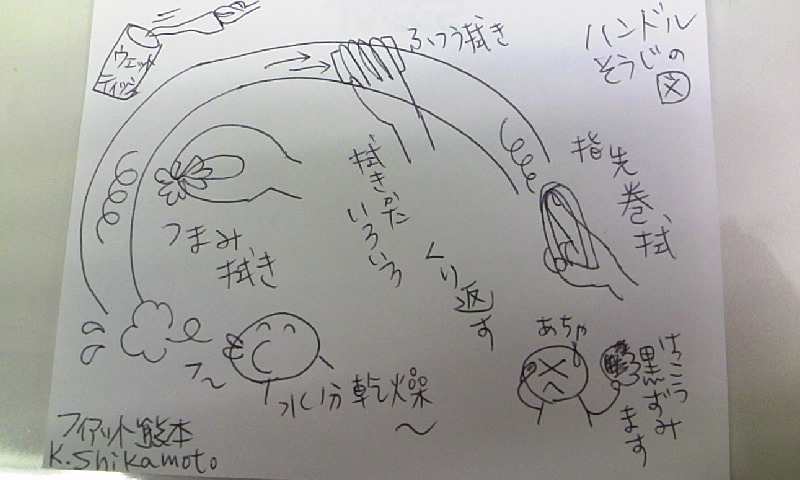 ハンドル
そうじの
図
ウェット
ティッシュ
ふつう拭き
指先巻拭
拭きかた
いろいろ
つまみ
拭き
くり返す
あちゃ
けっこう
黒ずみ
ます
フ〜
水分乾燥
〜
フィアット熊本
K.Shikamoto